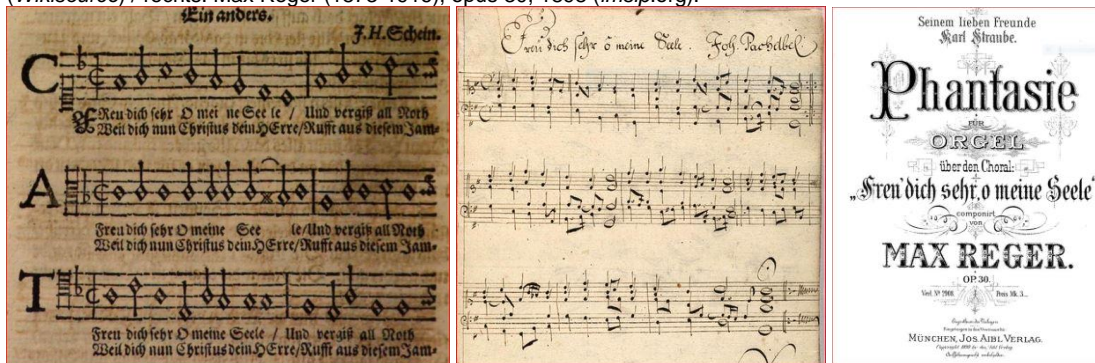 (Wikisource) / rechts: Max Reger (1873-1916), opus 30, 1898 (imslp.org).
Ein anders.
J.H.Schein.
C
FReu dich sehr O mei ne See le / Und vergiß all Noth
Weil dich nun Christus dein HErre/Rufft aus diesem Jam-
A
Freu dich sehr O meine See le/Und vergiß all Noth
Weil dich nun Christus dein HErre/Rufft aus diesem Jam-
T
Freu dich sehr O meine Seele / Und vergiß all Noth
Weil dich nun Christus dein HErre/Rufft aus diesem Jam-
Freu dich sehr ô meine Seele. Joh. Pachelbel
Seinem lieben Freunde
Karl Straube.
Phantasie
FÜR
ORGEL
über den Choral:
„Freu' dich sehr, o meine Seele“
componirt
von
MAX REGER.
OP. 30.
Preis Mk. 3._
MÜNCHEN, JOS. AIBL VERLAG.